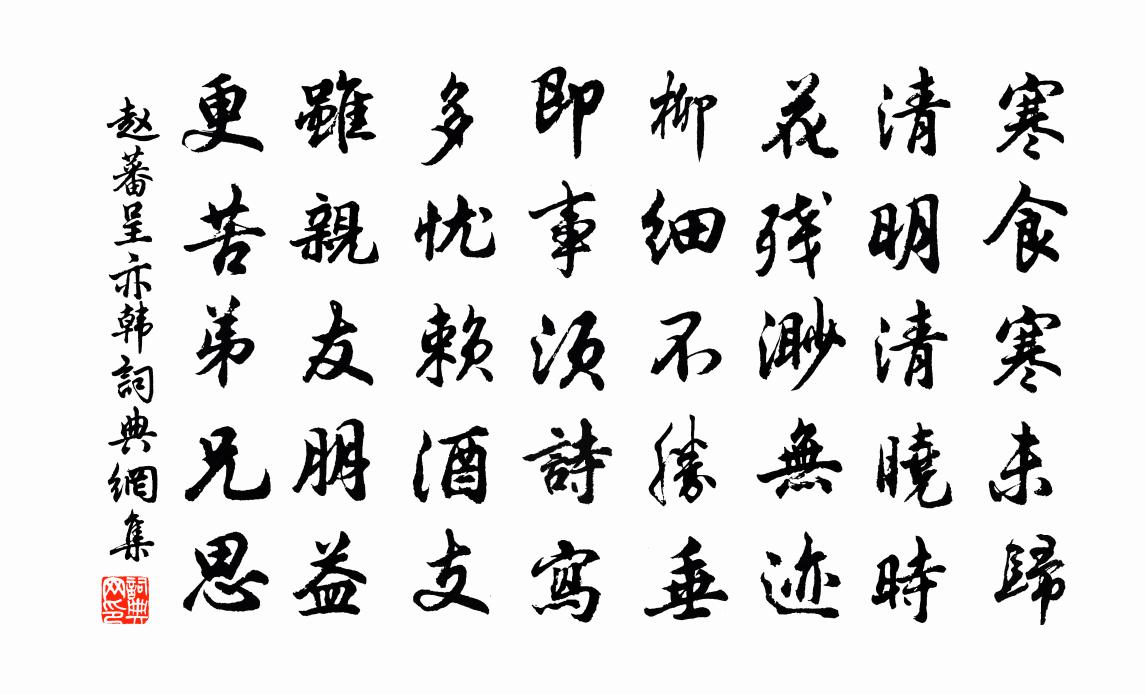 寒食寒未歸
清明清曉時
花残渺無迹
柳細不勝垂
即事須詩寫
多忧賴酒支
雖親友朋益
更苦弟兄思
赵蕃呈亦韩詞典網集
詞典網印